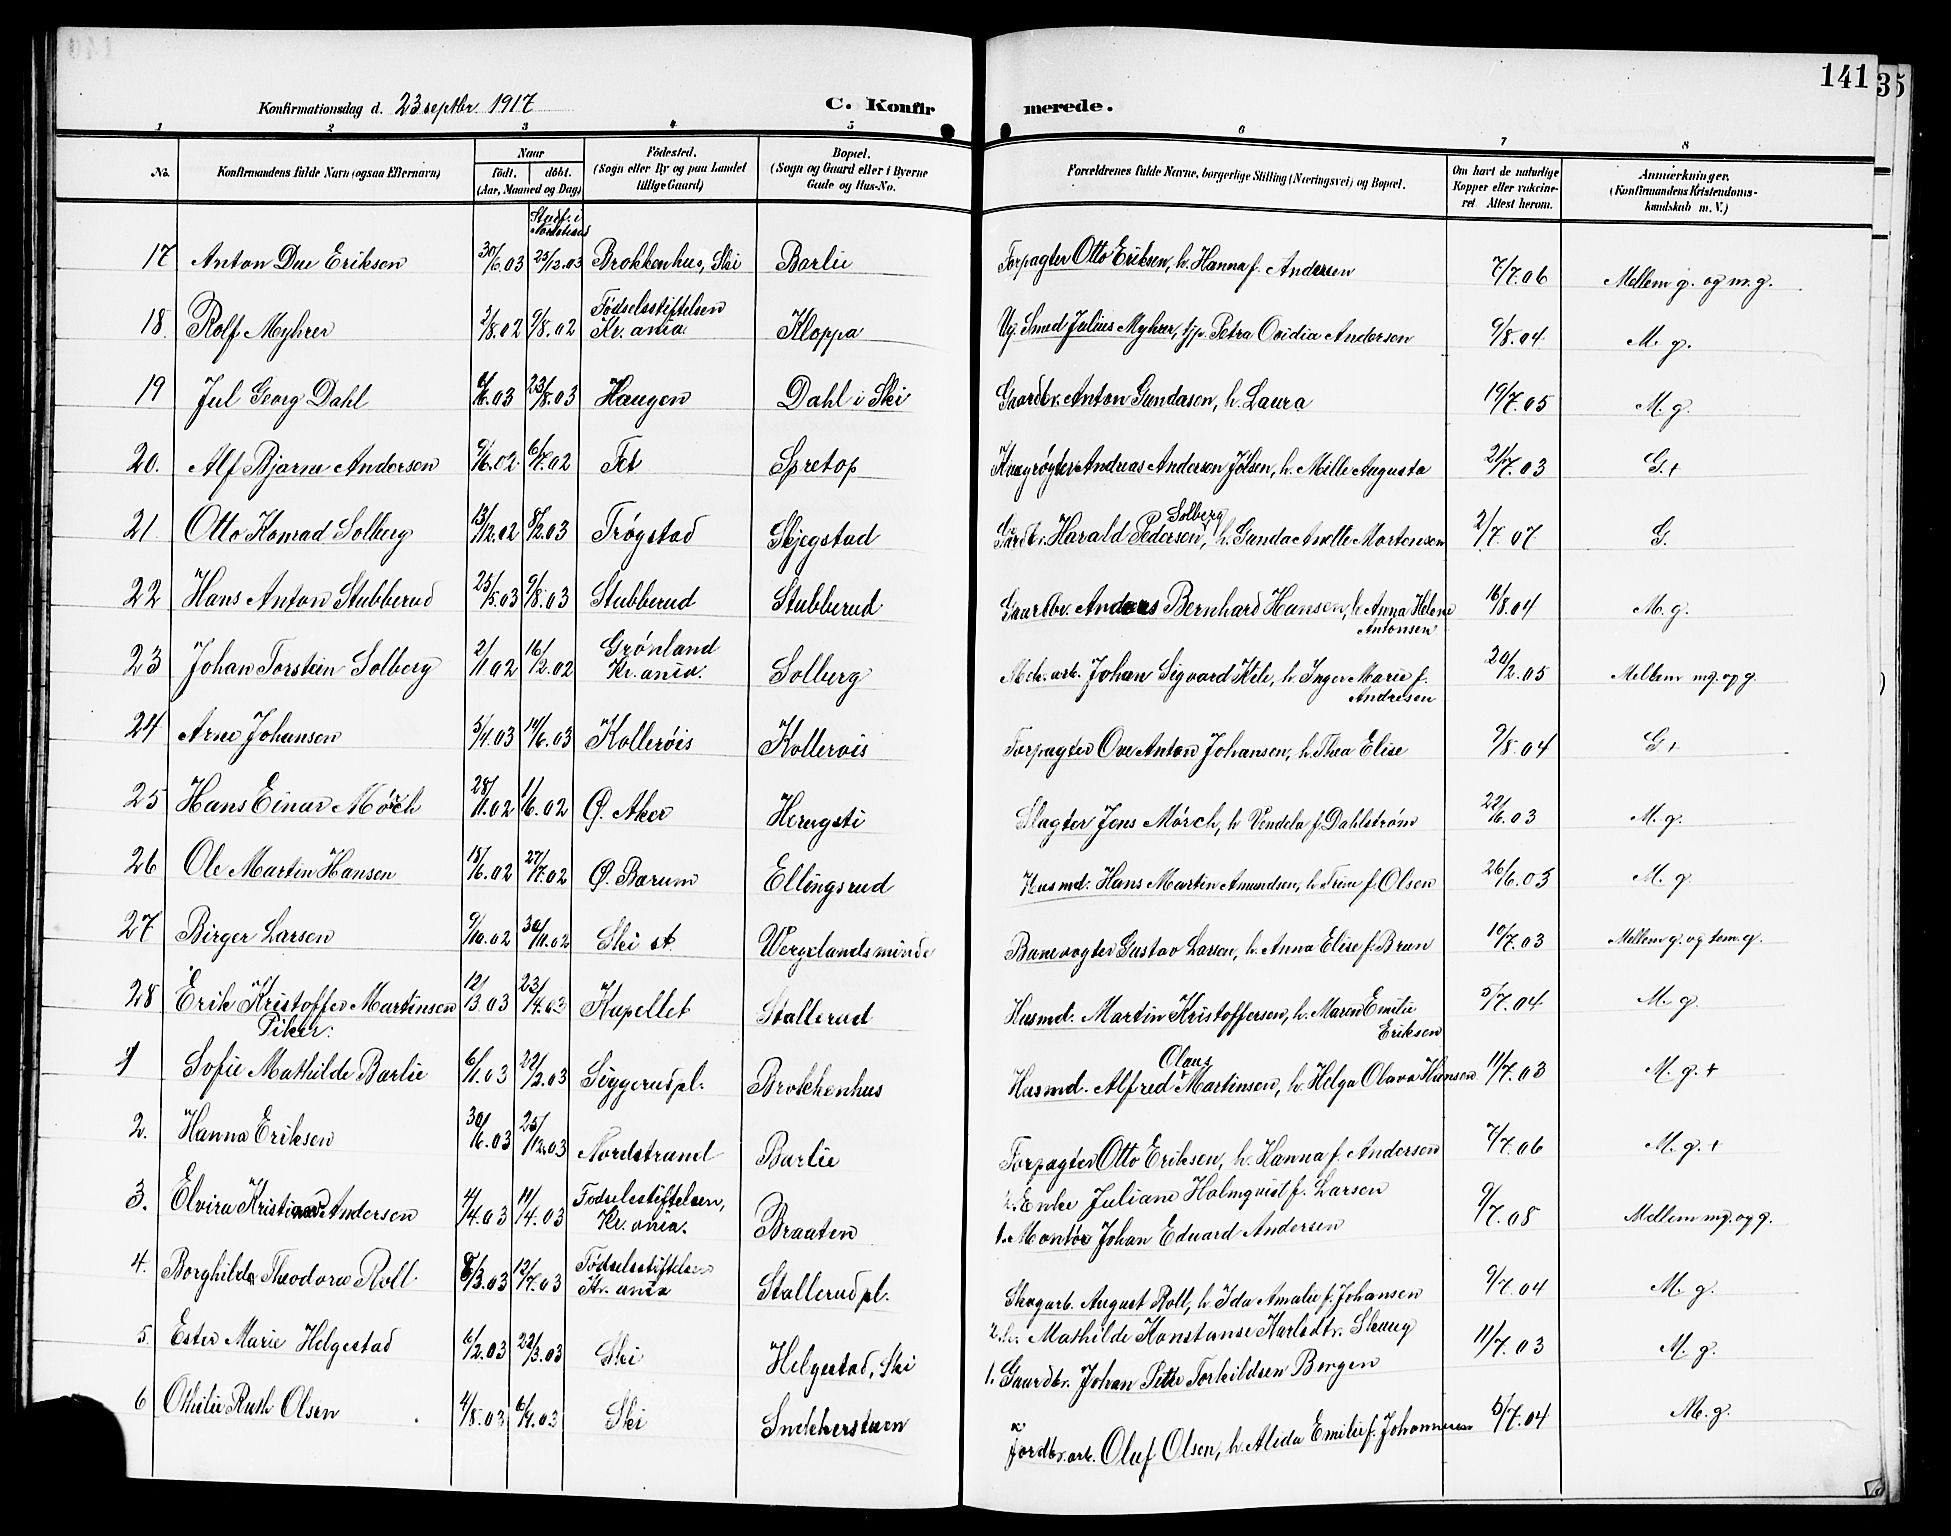 141
35
Konfirmationsdag d. 23 septbr. 1917 C. Konfirmerede.
1 2 3 4 5 6 7 8
No. Konfirmandens fulde Navn (ogsaa Efternavn) Naar født. døbt. (Aar, Maaned og Dag) Fødested. (Sogn eller By og paa Landet tillige Gaard) Bopæl. (Sogn og Gaard eller i Byerne Gade og Hus-No. Forældrenes fulde Navne, borgerlige Stilling (Næringsvei) og Bopæl. Om havt de naturlige Kopper eller vaccineret Attest herom. Anmerkninger. (Konfirmandens Kristendomskundskab m. V.)
Stadf. i
17 Anton Due Eriksen 30/6.03 25/12.03 Brokkenhus, Ski Barlie Forpagter Otto Eriksen, h. Hanna f. Andersen 7/7.06 Mellem g. og m.g.
18. Rolf Myhrer 3/8.02 9/8.02 Fødselsstiftelsen Kr.ania Kloppa Ug. Smed Julius Myhrer, Petra Ovidia Andersen 9/8.04 M. g.
19 Jul Georg Dahl 6/6.03 23/8.03 Haugen Dahl i Ski Gaardbr. Anton Gundasen, h. Laura 19/7.05 M. g.
20. Alf Bjarne Andersen 9/6.02 6/7.02 Fet Spretop Andreas Andersen Jølsen, h. Mille Augusta 21/7.03 G.+
21 Otto Konrad Solberg 13/12.02 8/2.03 Trøgstad Skjegstad Gardbr. Harald Pedersen Solberg, h. Gunda Anette Mortensen 2/7.07 G.
22 Hans Anton Stubberud 25/5.03 9/8.03 Stubberud Stubberud Gaardbr. Anders Bernhard Hansen, h. Anna Helene Antonsen 16/8.04 M. g.
23 Johan Torstein Solberg 2/11.02 16/12.02 Grønland Kr.ania. Solberg Mek. arb. Johan Sigvard Kile, h. Inger Marie f. Andresen 20/2.05 Mellem mg. og g.
24 Arne Johansen 5/4.03 14/6.03 Kollerøis Kollerøis Forpagter Ove Anton Johansen, h. Thea Elise 9/8.04 G+
25 Hans Einar Mörch 28/11.02 1/6.02 Ø. Aker Herugsti Slagter Jens Mörch, h. Vendela f. Dahlstrøm 22/6.03 M. g.
26 Ole Martin Hansen 18/6.02 27/7.02 Ø. Bærum Ellingsrud Husmd. Hans Martin Amundsen, h. Trine f. Olsen 26/6.03 M. g.
27 Birger Larsen 9/10.02 30/11.02 Ski st. Vergelandsminde Banevogter Gustav Larsen, h. Anna Elise f. Brun 10/7.03 Mellem g. og tem. g.
28 Erik Kristoffer Martinsen 12/3.03 23/4.03 Kapellet Stallerud Husmd. Martin Kristoffersen, h. Maren Emilie Eriksen 5/7.04 M. g.
Piker.
1 Sofie Mathilde Barlie 6/1.03 22/2.03 Siggerudpl. Brokkenhus Husmd. Alfred Olaus Martinsen, h. Helga Olava Hansen 11/7.03 M. g.+
2. Hanna Eriksen 30/6.03 25/12.03 Nordstrand Barlie Forpagter Otto Eriksen, h. Hanna f. Andersen 7/7.06 M. g.+
3. Elvira Kristiane Andersen 4/4.03 11/4.03 Fødselsstiftelsen, Kr.ania. Braaten 2. Enke Juliane Holmqvist f. Larsen 1. Montør Johan Eduard Andersen 9/7.08 Mellem mg. og g.
4. Borghilda Theodora Roll 8/3.03 12/7.03 Fødselsstiftelsen Kr.ania Stallerudpl. Skogarb. August Roll, h. Ida Amalie f. Johansen 9/7.04 M. g.
5. Ester Marie Helgestad 6/2.03 22/3.03 Ski Helgestad, Ski 2. h. Mathilde Konstanse Karlsdtr. Skaug 1. Gaardbr. Johan Petter Torkildsen Bergen 11/7.03 M. g.
6 Othilie Ruth Olsen 4/8.03 Ski Snekkerstuen Jordbr. arb. Oluf Olsen, h. Alida Emilie f. Johannesen 5/7.04 M. g.